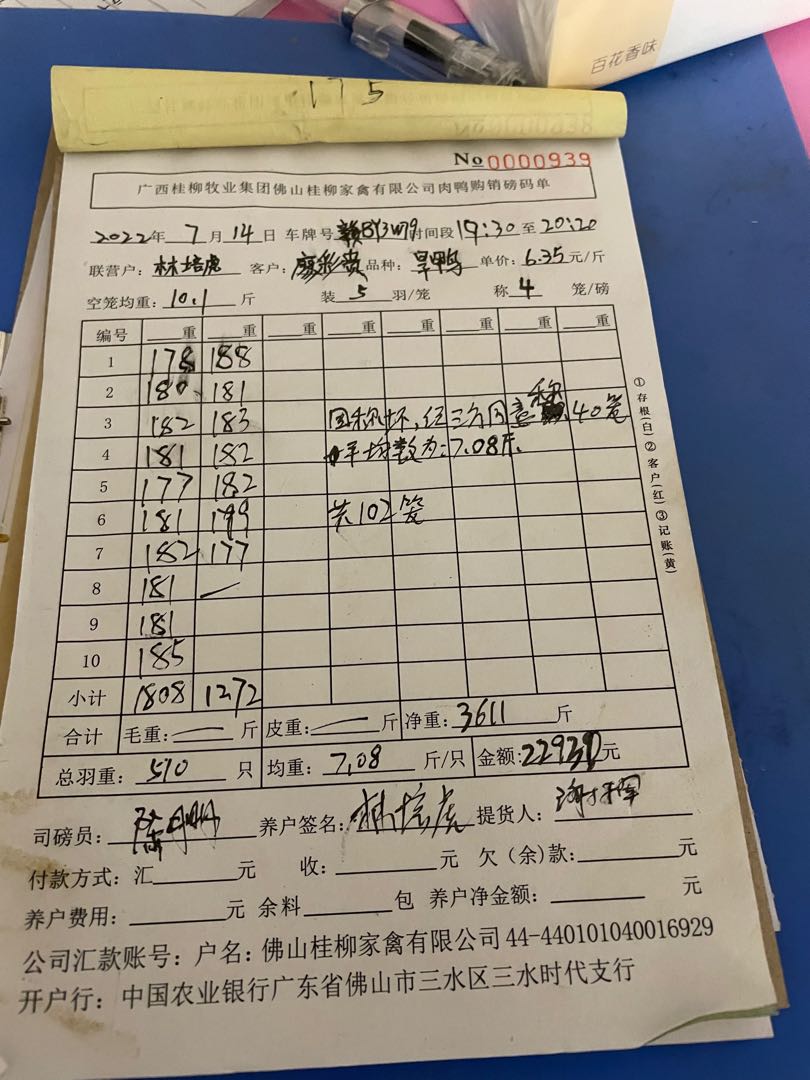 百花香味
175
No 0000939
广西桂柳牧业集团佛山桂柳家禽有限公司肉鸭购销磅码单
2022年 7 月 14 日 车牌号 时间段 19:30 至 20:20
联营户：林培虎 客户：廖彩贵 品种：旱鸭 单价：6.35 元/斤
空笼均重：10.1 斤 装 5 羽/笼 称 4 笼/磅
编号 重 重 重 重 重 重 重
1 178 188
2 180 181
3 182 183 因称坏，经三方同意称40笼
4 181 182 平均数为：7.08斤
5 177 182
6 181 179 共102笼
7 182 177
8 181 —
9 181
10 185
小计 1808 1272
合计 毛重：— 斤 皮重：— 斤 净重：3611 斤
总羽重：510 只 均重：7.08 斤/只 金额：22930元
司磅员： 养户签名：林培虎 提货人：
付款方式：汇 元 收： 元 欠（余）款： 元
养户费用： 元 余料 包 养户净金额： 元
公司汇款账号：户名：佛山桂柳家禽有限公司 44-440101040016929
开户行：中国农业银行广东省佛山市三水区三水时代支行
①存根(白)②客户(红)③记账(黄)